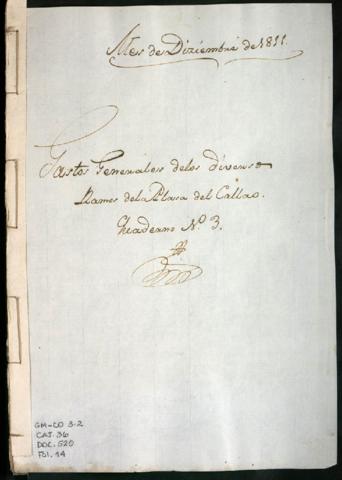 Mes de Diziembre de 1811.
Gastos Generales delos diversos
Ramos dela Plasa del Callao.
Quaderno N.º 3.
GM-CO 3-2
CAJ. 36
DOC. 520
FOL. 14